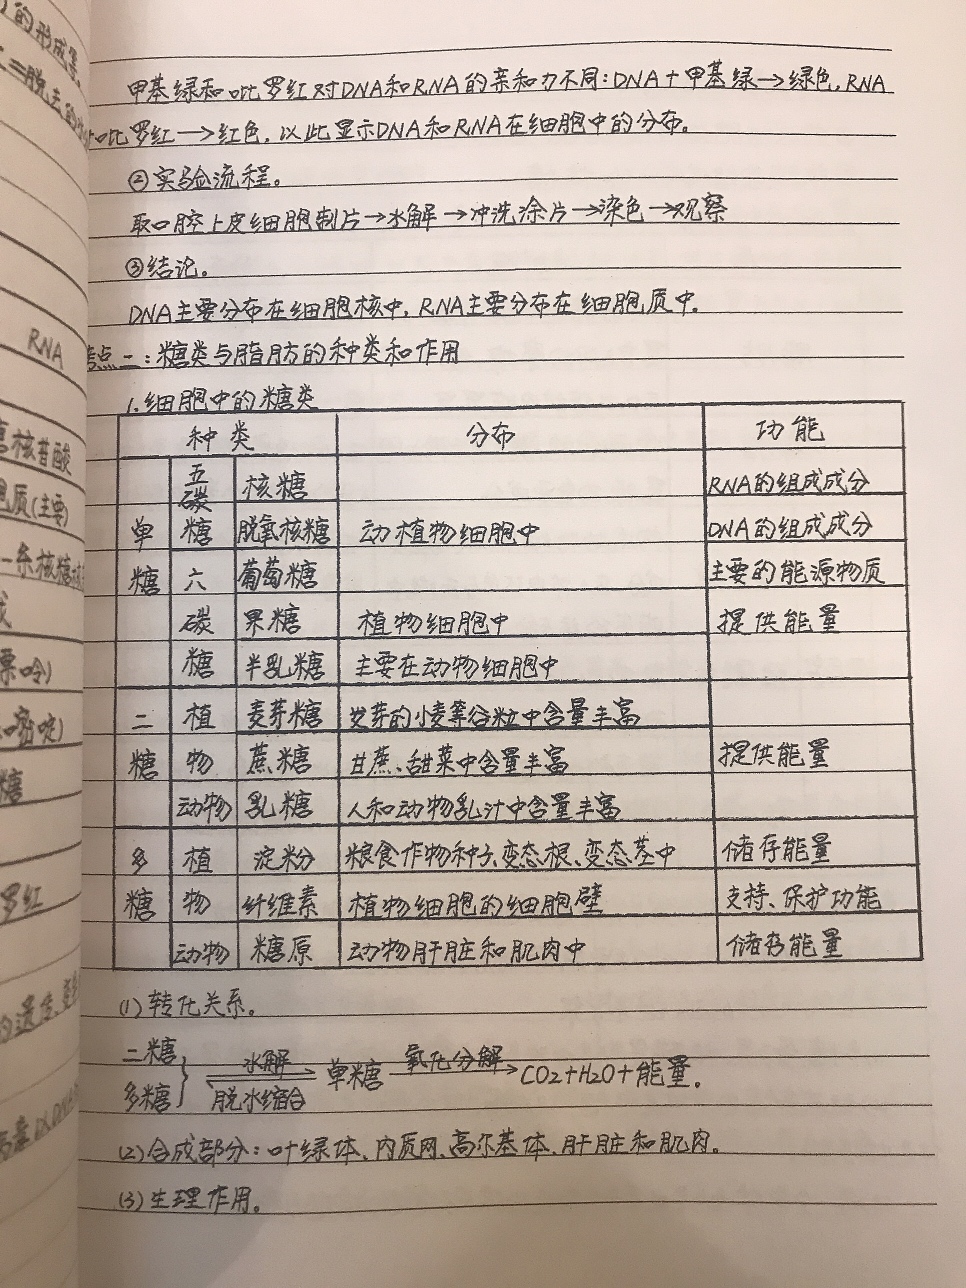 的形成
甲基绿和吡罗红对DNA和RNA的亲和力不同:DNA+甲基绿→绿色,RNA
+吡罗红→红色,以此显示DNA和RNA在细胞中的分布。
②实验流程。
取口腔上皮细胞制片→水解→冲洗涂片→染色→观察
③结论。
DNA主要分布在细胞核中,RNA主要分布在细胞质中。
RNA
考点二:糖类与脂肪的种类和作用
1.细胞中的糖类
种类 分布 功能
五碳糖 核糖 RNA的组成成分
单糖 脱氧核糖 动植物细胞中 DNA的组成成分
六碳糖 葡萄糖 主要的能源物质
果糖 植物细胞中 提供能量
半乳糖 主要在动物细胞中
二糖 植物 麦芽糖 发芽的小麦等谷粒中含量丰富
蔗糖 甘蔗、甜菜中含量丰富 提供能量
动物 乳糖 人和动物乳汁中含量丰富
多糖 植物 淀粉 粮食作物种子、变态根、变态茎中 储存能量
纤维素 植物细胞的细胞壁 支持、保护功能
动物 糖原 动物肝脏和肌肉中 储存能量
(1)转化关系。
二糖
多糖 } 水解 脱水缩合 单糖 氧化分解→CO2+H2O+能量.
(2)合成部分:叶绿体、内质网、高尔基体、肝脏和肌肉。
(3)生理作用。
核苷酸
质(主要)
嘌呤)
嘧啶)
糖
罗红